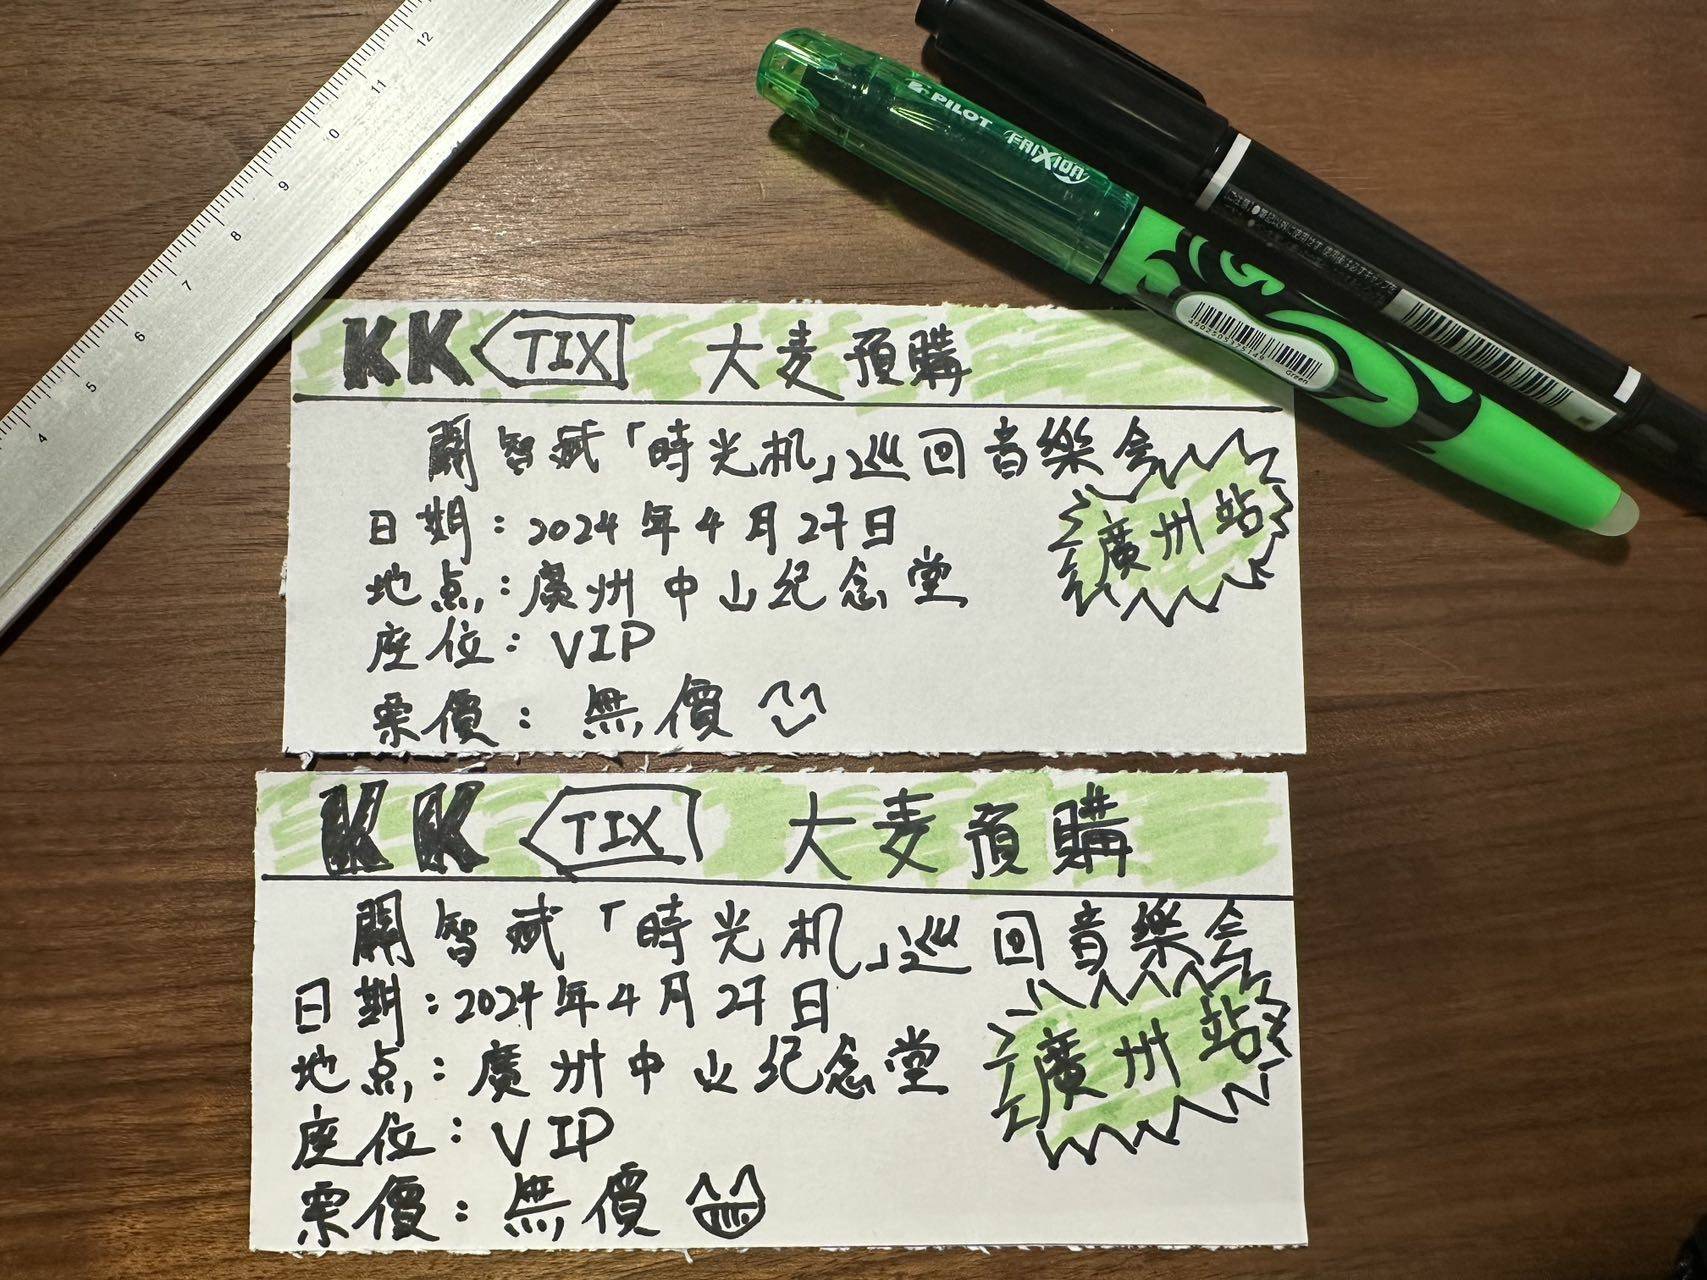 4 5 6 7 8 9 10 11 12
PILOT
FRIXION
4902505375149
Green
KK TIX 大麦預購
關智斌「時光机」巡回音樂会
廣州站
日期：2024年4月27日
地点：廣州中山紀念堂
座位：VIP
票價：無價
KK TIX 大麦預購
關智斌「時光机」巡回音樂会
廣州站
日期：2024年4月27日
地点：廣州中山紀念堂
座位：VIP
票價：無價